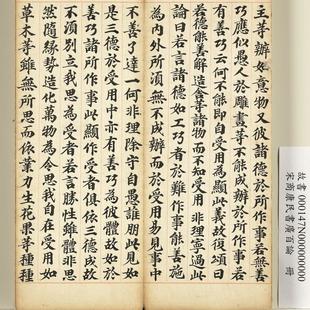 主等辦如意物又彼諸德所作事若無善
巧應似愚人於雕畫等不能成辦所作事若
有善巧云何不能即自受用為顯此義
若德能善解造舍等諸物而不知受用非理寧過此
論曰若言諸德如工巧者於難作事能善施
為內外所須無不成辦而於受用易見事中
不善了達一何非理除守自愚誰朋此見如
是三德於受用中亦有善巧為彼體故如於
善巧諸所作事此顯作受者俱依三德成故
不須別立我思為受者若言勝性雖體非思
然隨緣勢造化萬物令思我自在受用如
草木等雖無所思而依業力生花果等種種
故書000147N000000000
宋商康民書廣百論 冊